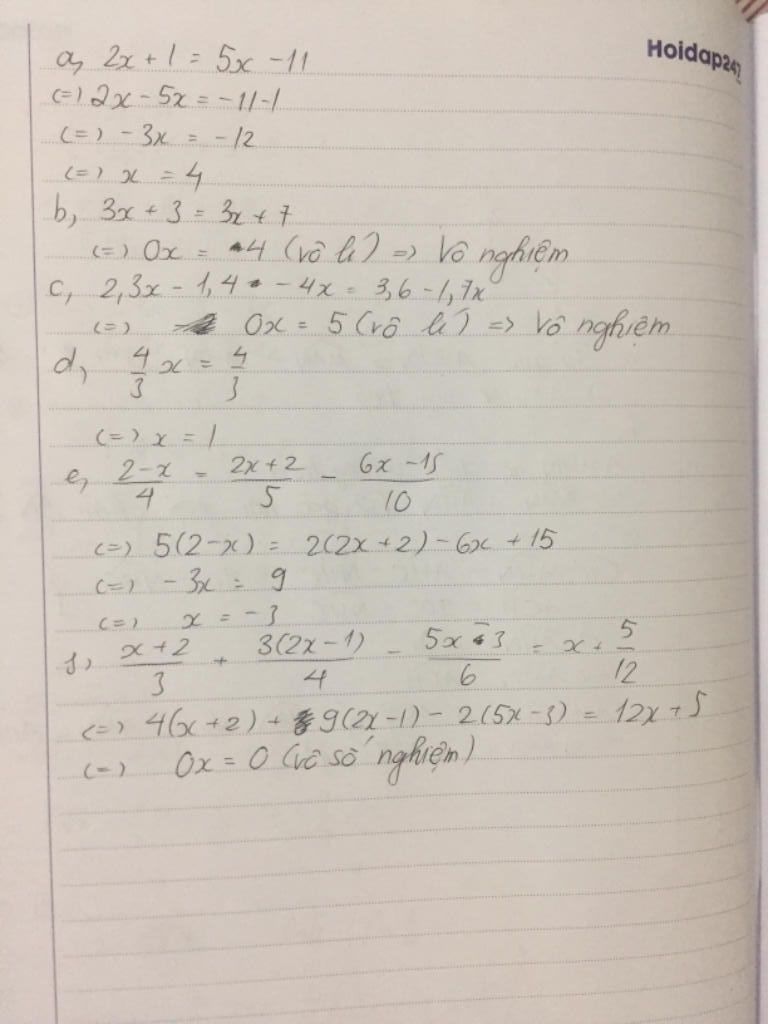 Hoidap247
a, 2x + 1 = 5x - 11
(=) 2x - 5x = -11 - 1
(=) -3x = -12
(=) x = 4
b, 3x + 3 = 3x + 7
(=) 0x = 4 (vô lí) => Vô nghiệm
c, 2,3x - 1,4 - 4x = 3,6 - 1,7x
(=) 0x = 5 (vô lí) => Vô nghiệm
d, 4/3 x = 4/3
(=) x = 1
e, (2-x)/4 = (2x+2)/5 - (6x-15)/10
(=) 5(2-x) = 2(2x+2) - 6x + 15
(=) -3x = 9
(=) x = -3
f, (x+2)/3 + 3(2x-1)/4 - (5x-3)/6 = x + 5/12
(=) 4(x+2) + 9(2x-1) - 2(5x-3) = 12x + 5
(=) 0x = 0 (vô số nghiệm)